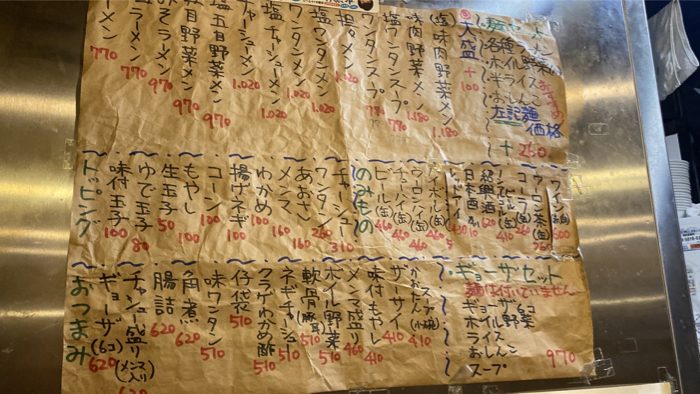 大盛
+100
各種ラーメン
ホイル野菜
半ライス
おしんこ
左記麺
価格
+260
塩味肉野菜メン 1.180
味肉野菜メン 1.180
塩ワンタンスープ 780
ワンタンスープ 780
塩ワンタンメン 1.020
ワンタンメン 1.020
塩チャーシューメン 1.020
チャーシューメン 1.020
塩五目野菜メン 970
五目野菜メン 970
みそラーメン 970
ラーメン 770
ラーメン 770
ウーロン茶(缶) 260
コーラ(缶) 260
紹興酒
日本酒
ウーロンハイ(缶) 460
ビール(缶) 460
のみもの
チャーシュー 310
ワンタン 260
あおさ 160
メンマ 160
わかめ 160
揚げネギ 100
コーン 100
もやし 100
生玉子 50
ゆで玉子 80
味付玉子 100
トッピング
ギョーザセット
麺は付いていません
ギョーザ6コ
ホイル野菜
ライス
おしんこ
スープ
970
かおたんスープ(小碗) 410
ザーサイ 410
味付もやし 410
メンマ盛り 460
ホイル野菜 510
軟骨(豚耳) 510
ネギチャーシュー 510
クラゲわかめ酢 510
仔袋 510
味ワンタン 510
角煮 620
腸詰 620
チャシュー盛り(メンマ入り) 620
ギョーザ(6コ) 620
おつまみ